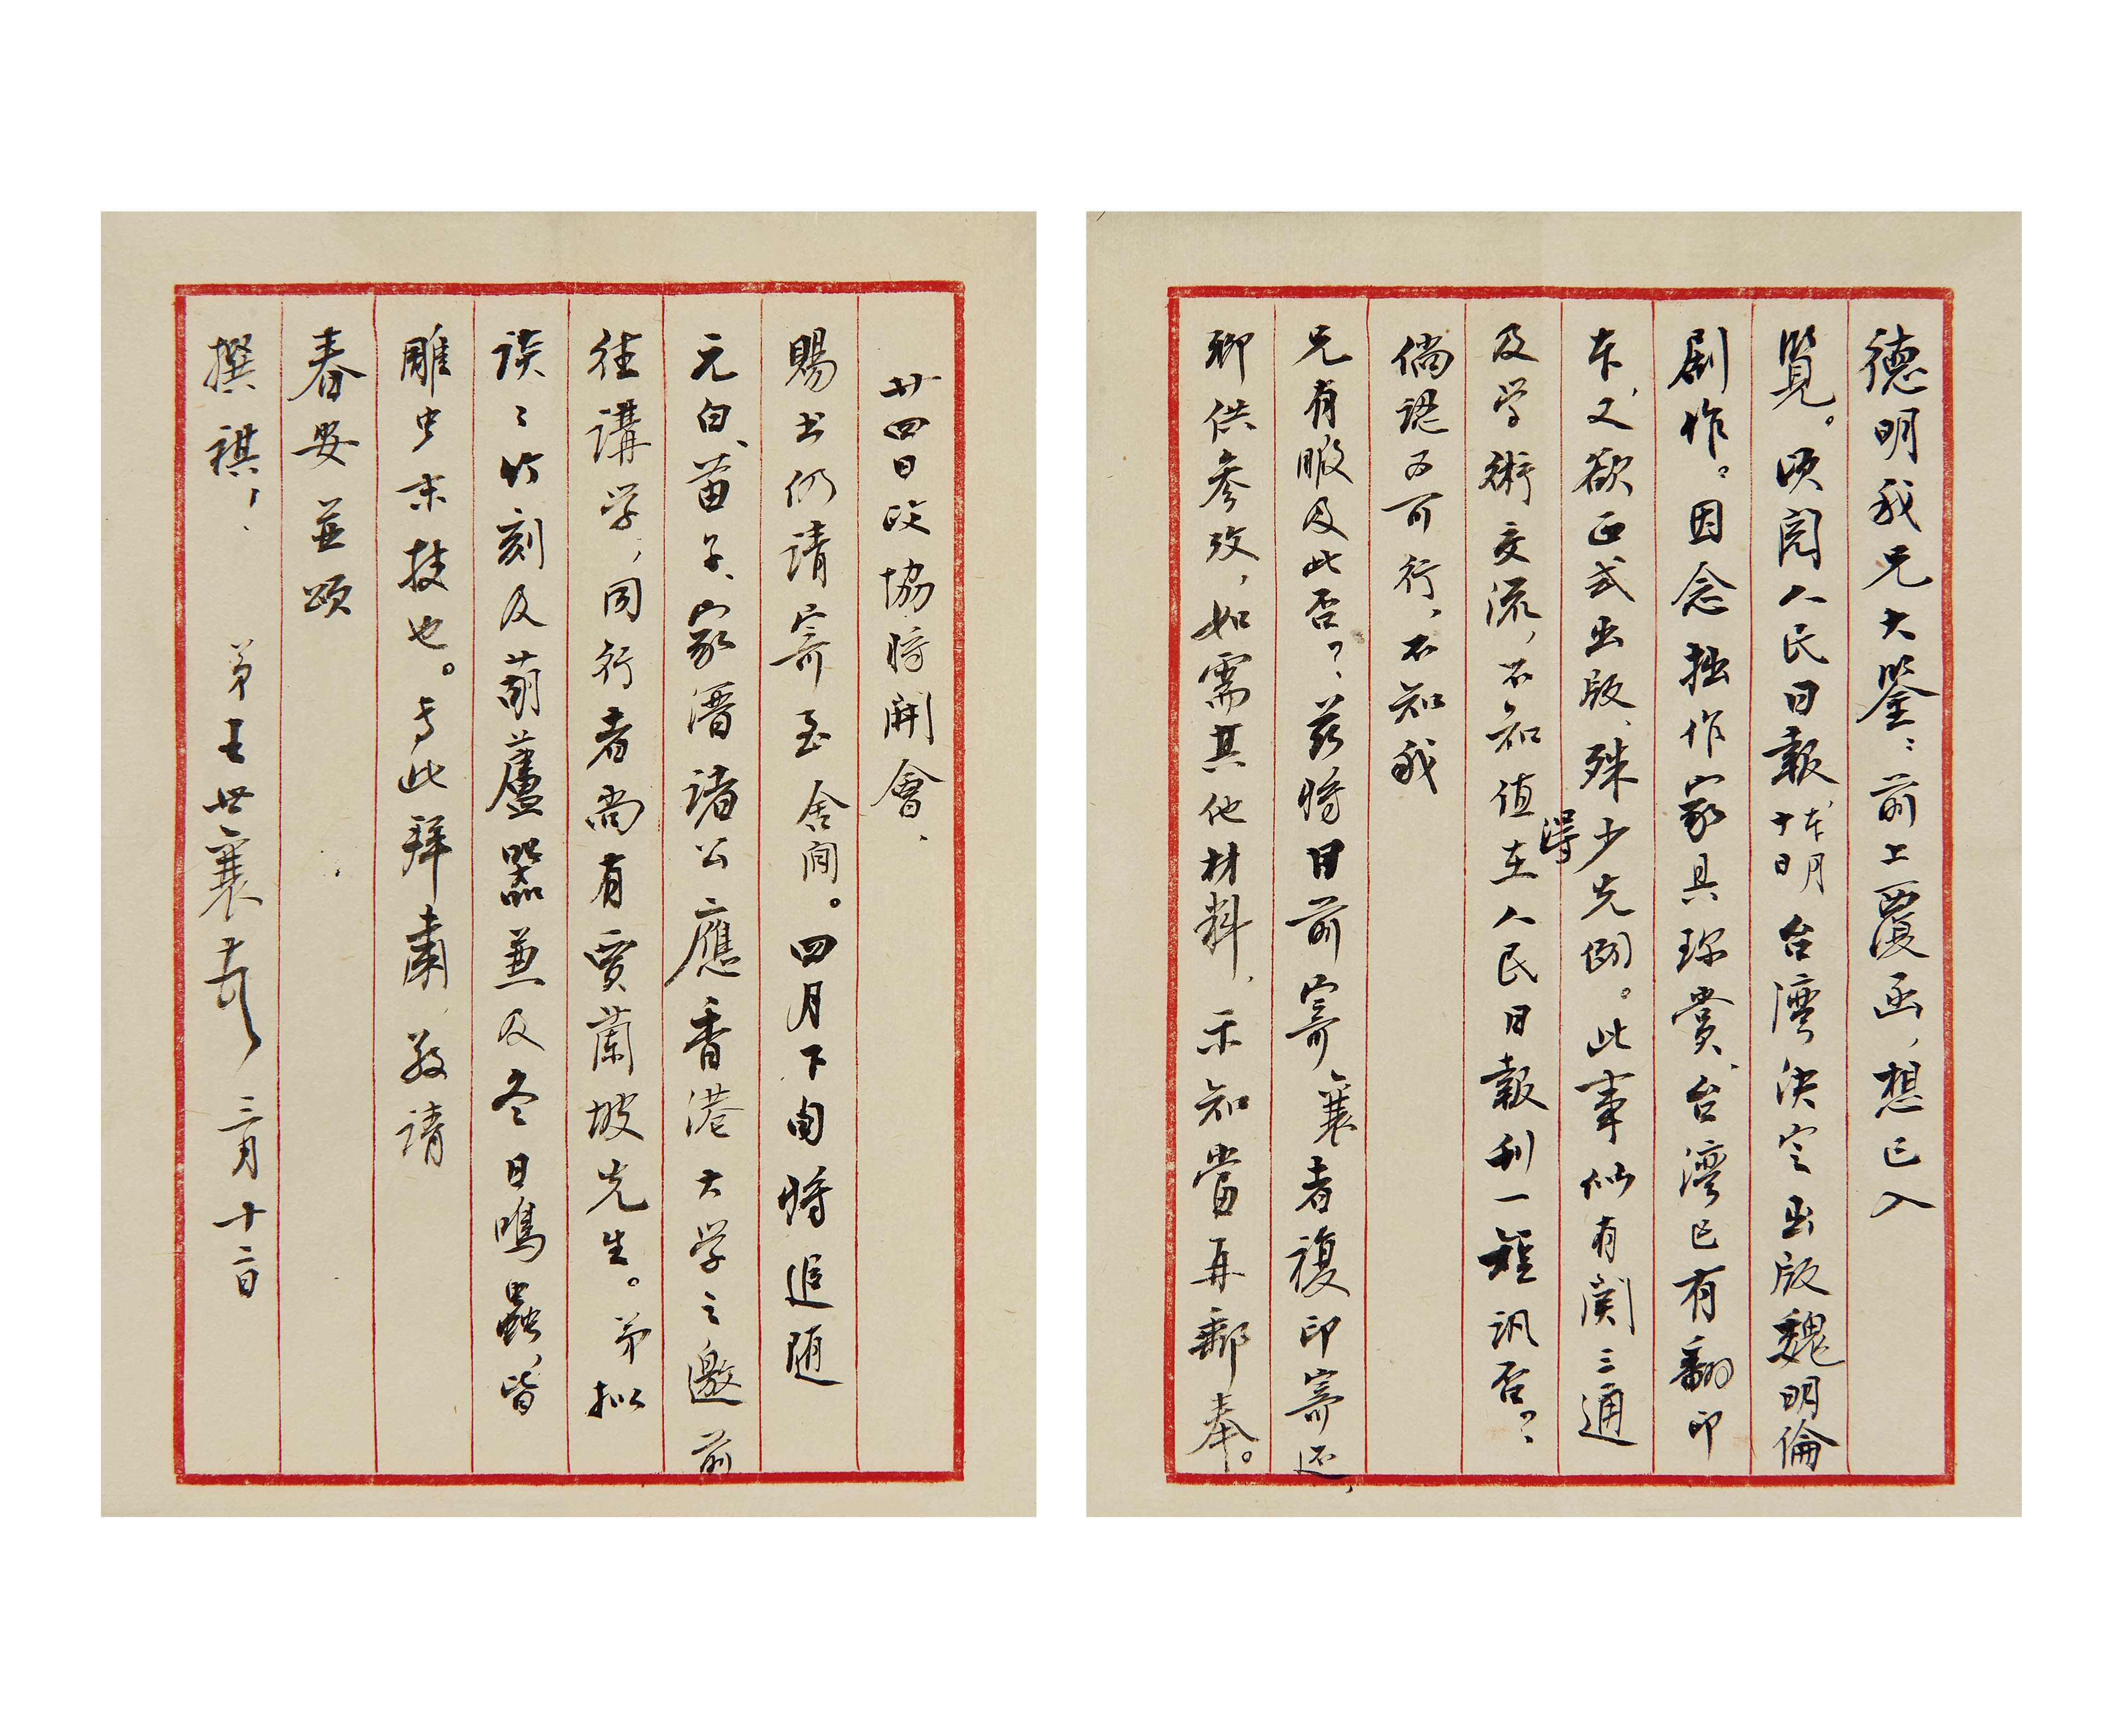 德明我兄大鑒：前上覆函，想已入
覽。頃閱人民日報本月十日明台灣決定出版魏明倫
劇作。因念拙作家具珍賞、台灣已有翻印
本、又欲正式出版、殊少先例。此事似有関三通
得
及学術交流，不知值在人民日報刊一短訊否？
倘認為可行，不知我
兄有暇及此否？茲將日前寄襄者複印寄还，
聊供參攷，如需其他材料，示知當再郵奉。
廿四日政協將開會、
賜书仍请寄至舍间。四月下旬將追随
元白、苗子、家溍諸公應香港大学之邀前
往講学，同行者尚有賈蘭坡先生。弟拟
談：竹刻及葫蘆器兼及冬日鳴蟲，皆
雕虫末技也。专此拜肅，敬请
春安並頌
撰祺！
弟王世襄 三月十二日